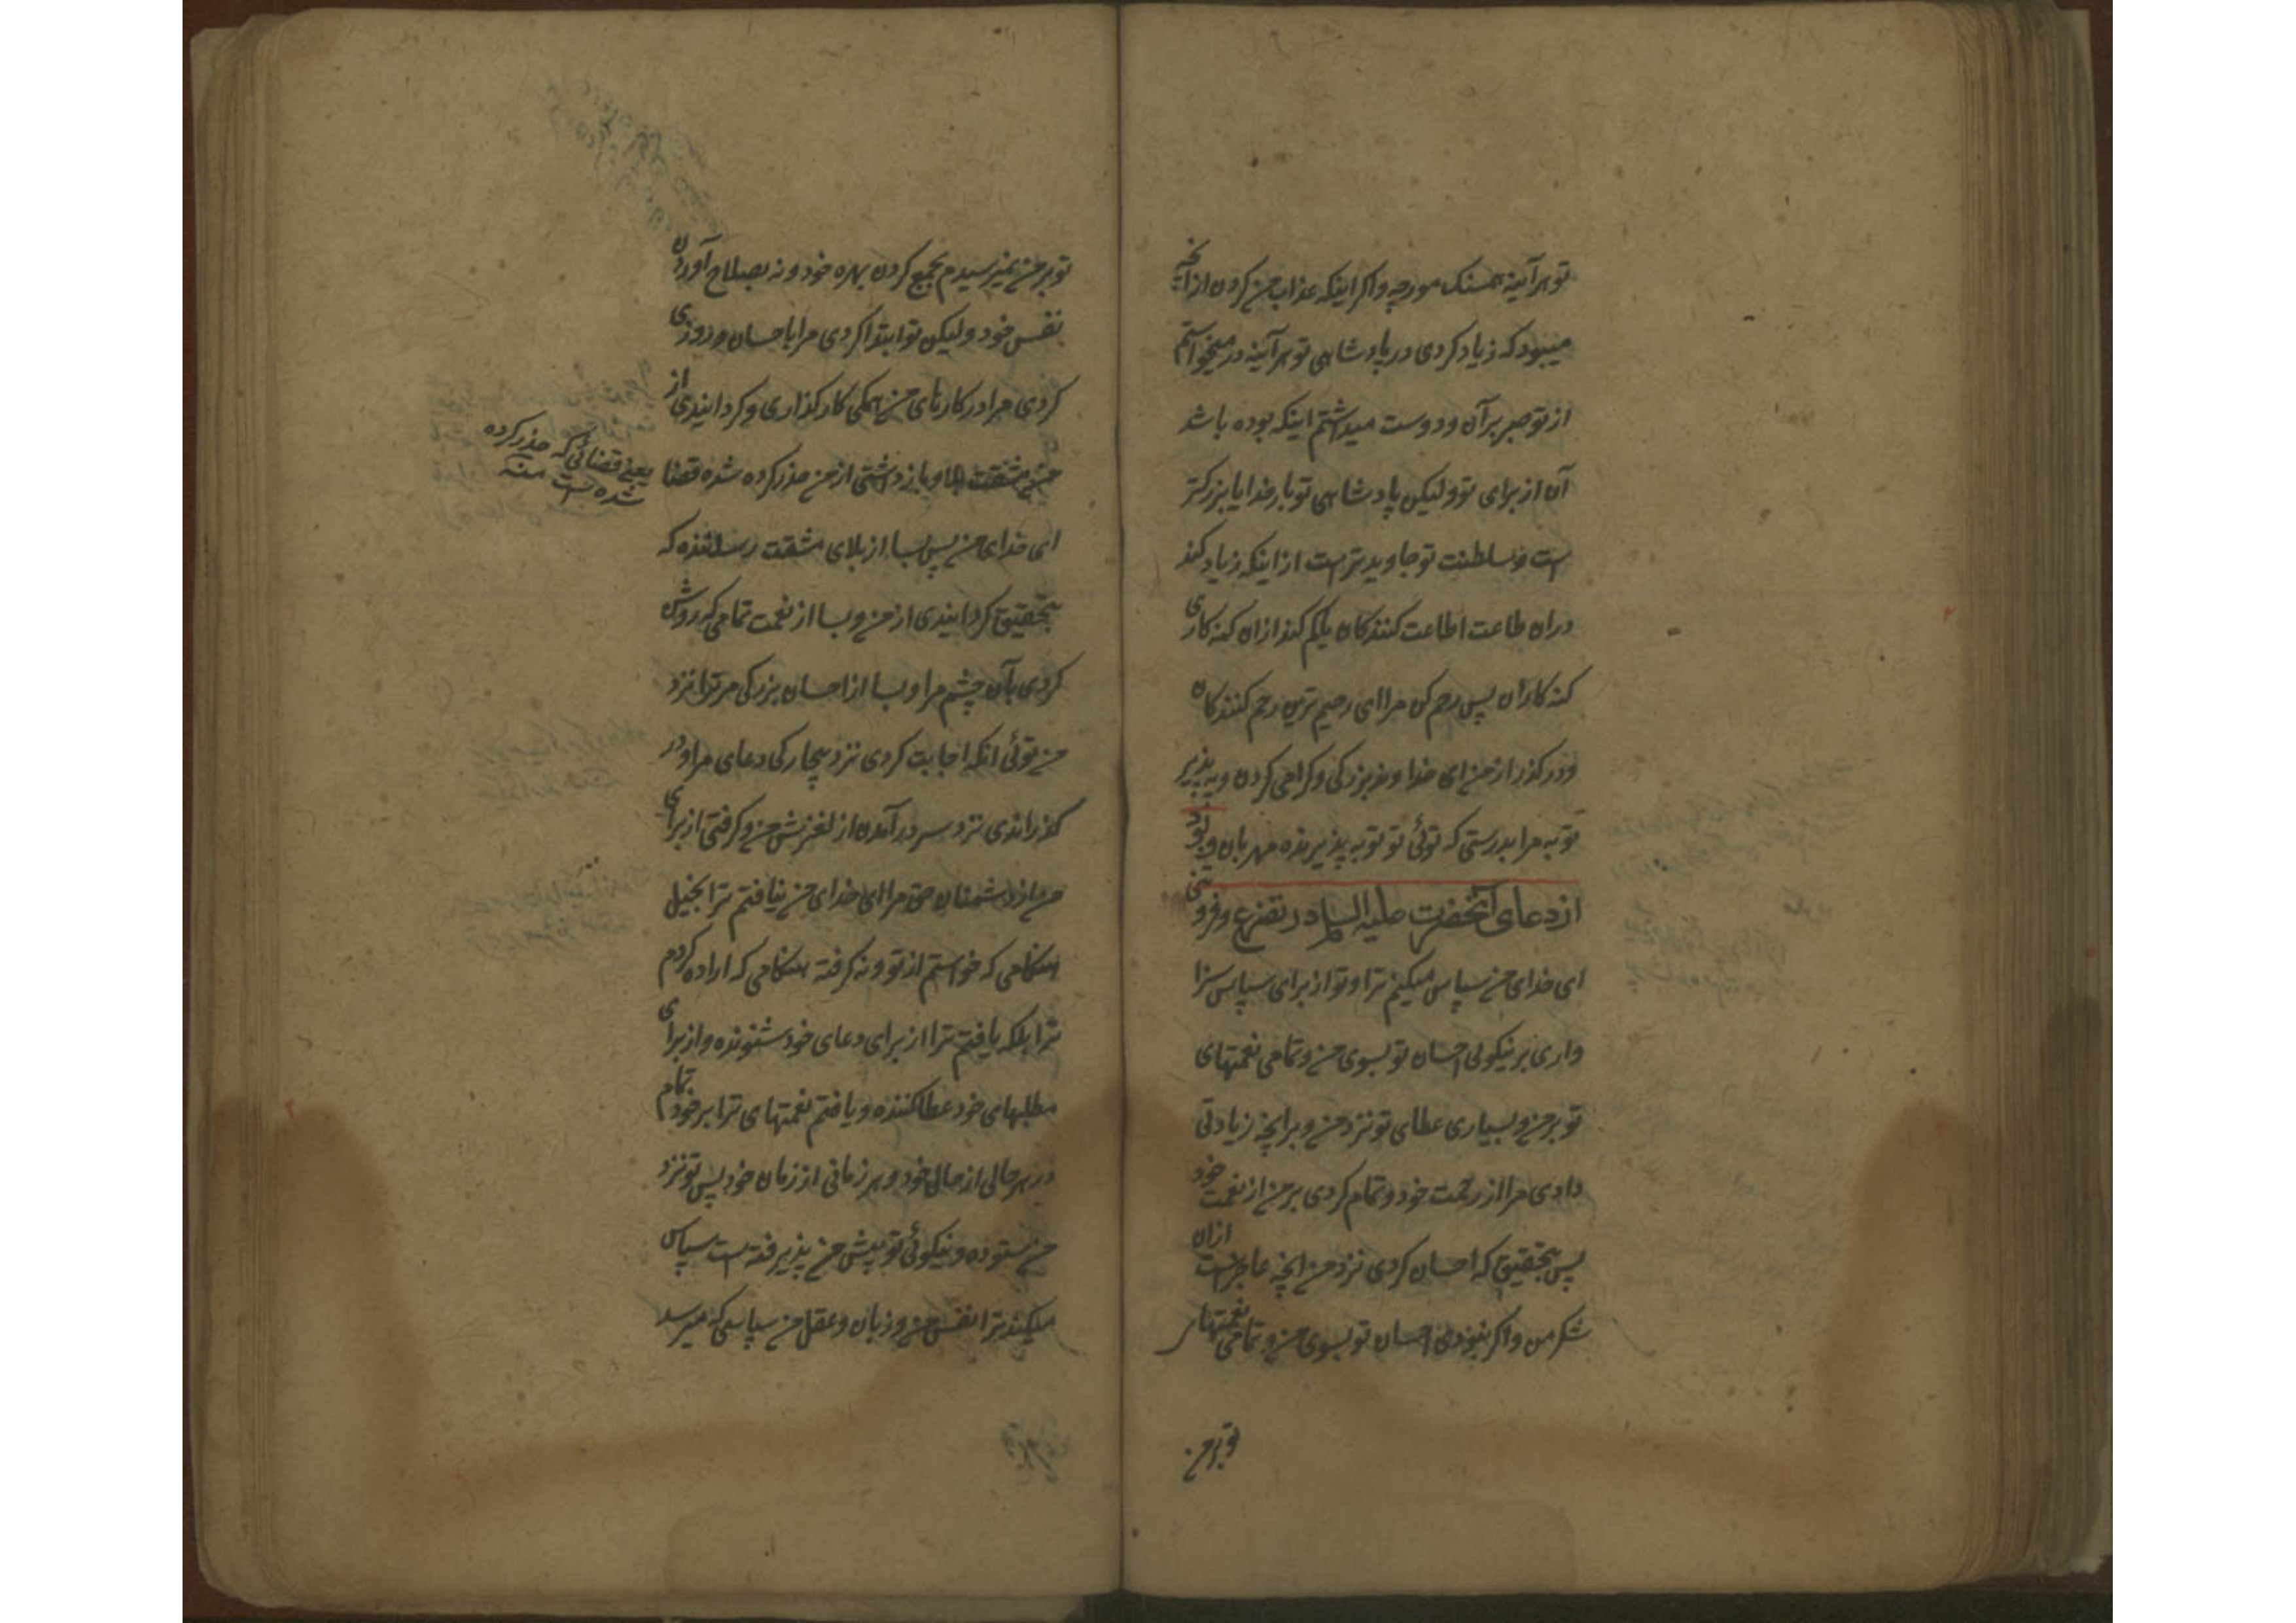 تو هر آینه همسنک مورچه و اکر اینکه عذاب من کردن از انچه
میبود که زیاد کردی در پادشاهی تو هر آینه در میخواستم
از تو صبر بر آن و دوست میداشتم اینکه بوده باشد
آن از برای تو ولیکن پادشاهی تو بار خدایا بزرکتر
است و سلطنت تو جاویدتر است از اینکه زیاد کند
دران طاعت اطاعت کنندکان یا کم کند ازان کنه کاری
کنه کاران پس رحم کن مرا ای رحیم ترین رحم کنندکان
و در کذر از من ای خداوند بزرکی و کرامی کردن و بپذیر
توبه مرا بدرستی که توئی تو توبه پذیرنده مهربان و بود
از دعای آنحضرت علیه السلام در تضرع و فروتنی
ای خدای من سپاس میکنم ترا و تو از برای سپاس سزا
واری بر نیکوئی احسان تو بسوی من و تمامی نعمتهای
تو بر من و بسیاری عطای تو نزد من و بر انچه زیادتی
دادی مرا از رحمت خود و تمام کردی بر من از نعمت خود
پس بتحقیق که احسان کردی نزد من انچه عاجز است ازان
شکر من و اکر نبودی احسان تو بسوی من و تمامی نعمتهای
تو بر من
تو بر من نمیرسیدم بجمع کردن بهره خود و نه بصلاح آوردن
نفس خود و لیکن تو ابتدا کردی مرا باحسان و روزی
کردی مرا در کارهای من همکی کارکذاری و کردانیدی از
من مشقت بلا و بازداشتی از من حذر کرده شده قضا
یعنی قضائی که حذر کرده
شده است منه
ای خدای من پس بسا از بلای مشقت رساننده که
بتحقیق کردانیدی از من و بسا از نعمت تمامی که روشن
کردی بآن چشم مرا و بسا از احسان بزرکی مر ترا نزد
من توئی انکه اجابت کردی نزد بیچارکی دعای مرا و در
کذراندی نزد بسر در آمدن از لغزش من و کرفتی از برای
من از دشمنان حق مرا ای خدای من نیافتم ترا بخیل
هنکامی که خواستم از تو و نه کرفته هنکامی که اراده کردم
ترا بلکه یافتم ترا از برای دعای خود شنونده و از برای
مطلبهای خود عطا کننده و یافتم نعمتهای ترا بر خود تمام
در هر حالی از حال خود و هر زمانی از زمان خود پس تو نزد
من ستوده و نیکوئی تو پیش من پذیرفته است سپاس
میکند ترا نفس من و زبان و عقل من سپاسی که میرسد